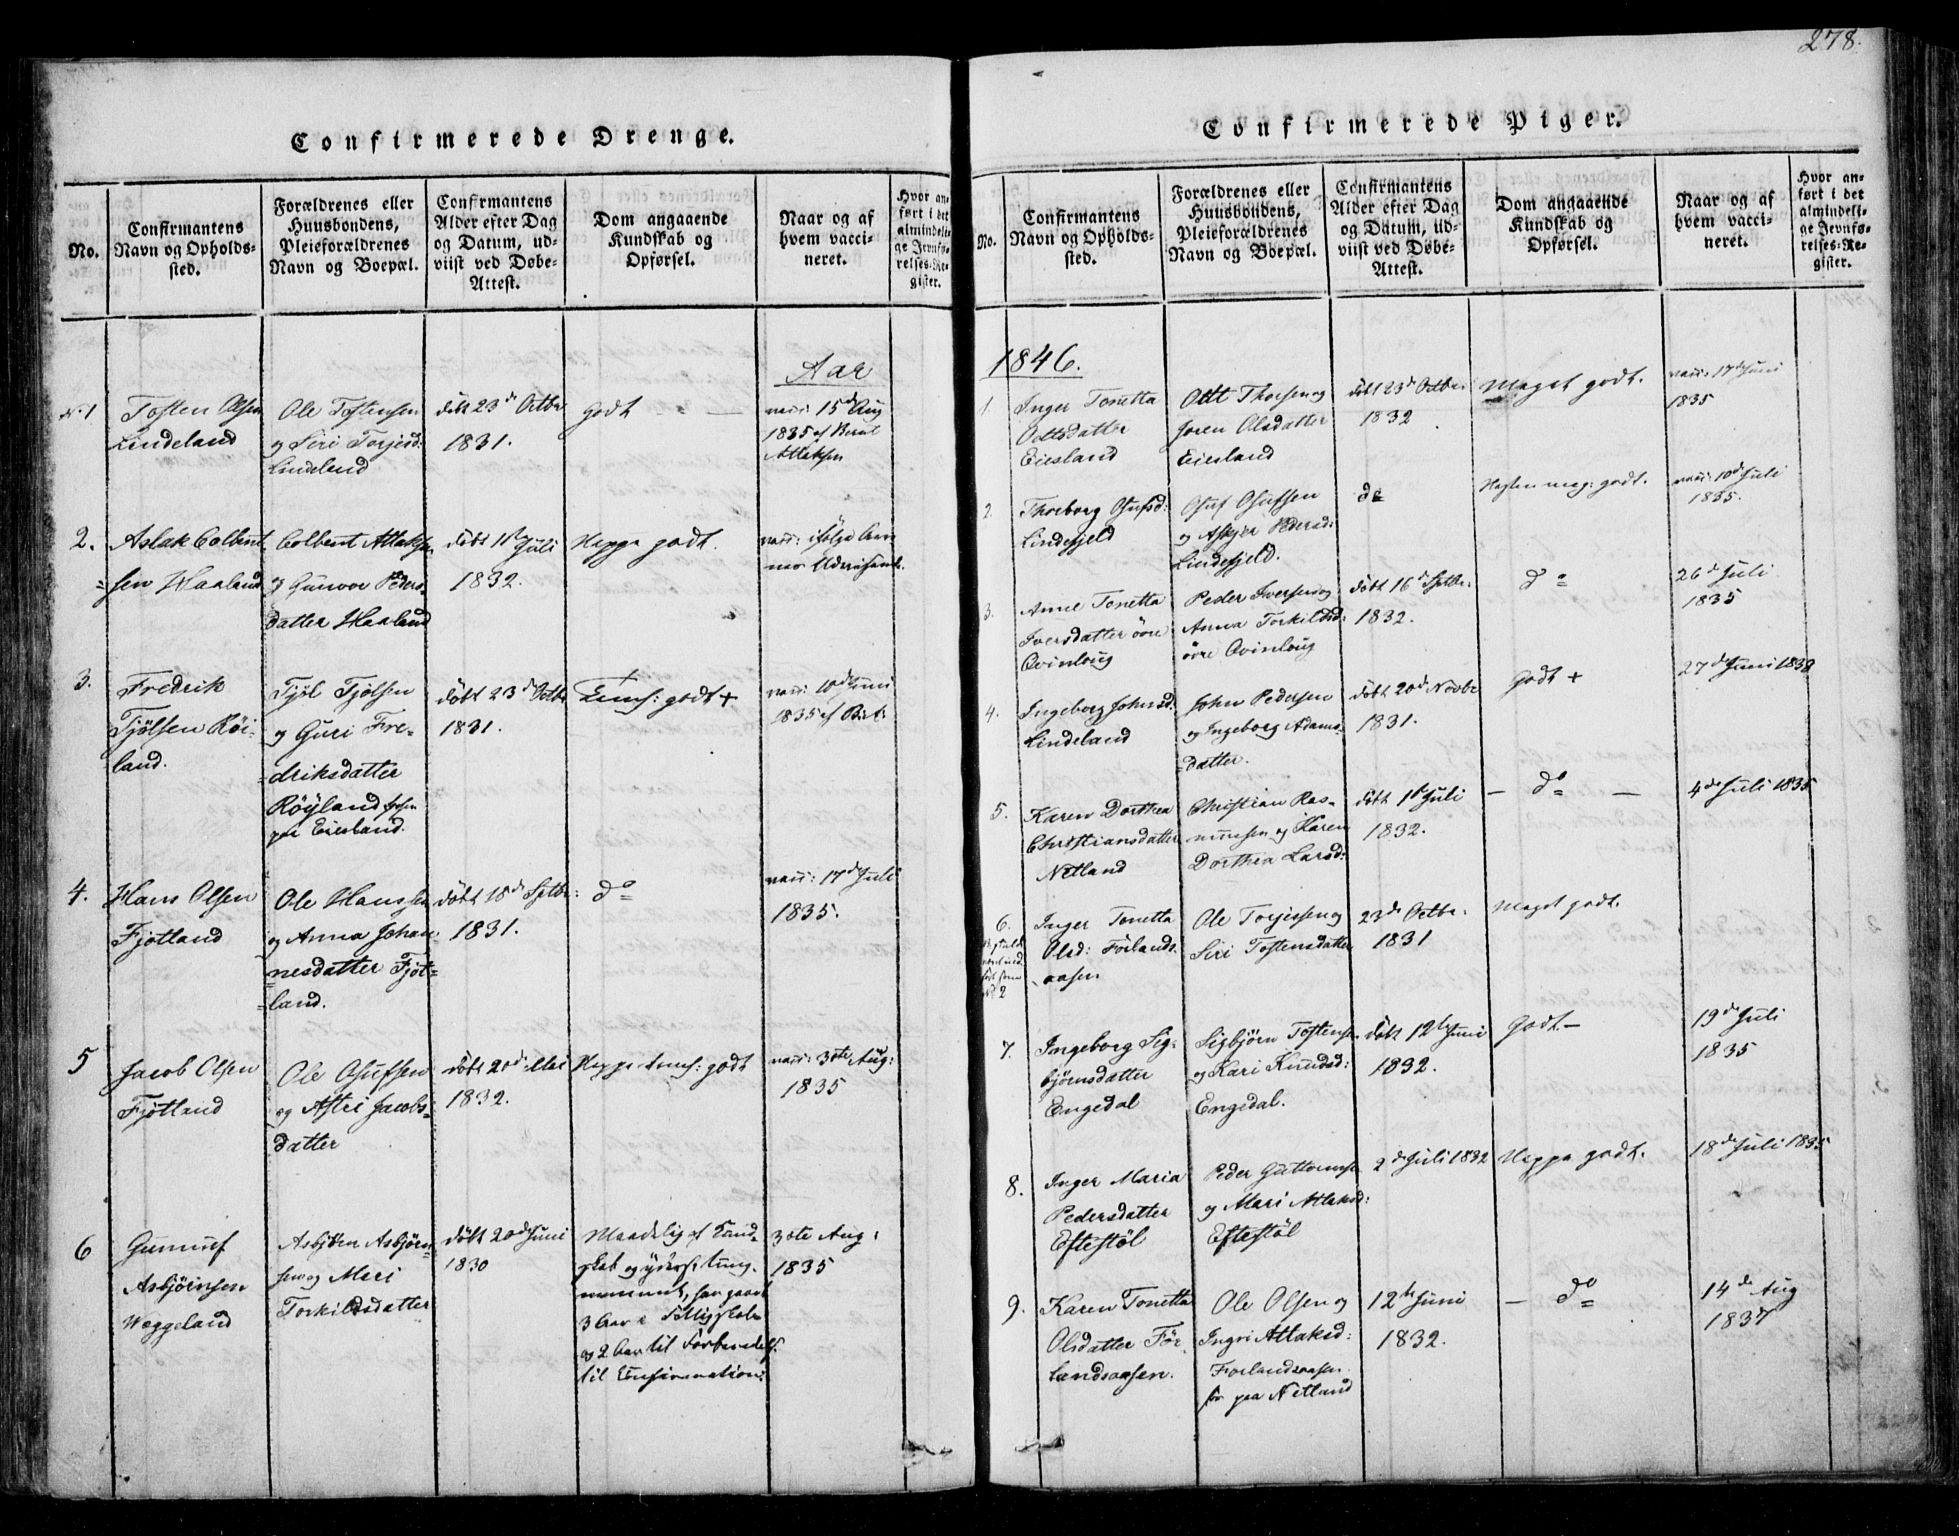 278.
Confirmerede Drenge.
No.
Confirmantens
Navn og Opholds-
sted.
Forældrenes eller
Huusbondens,
Pleieforældrenes
Navn og Boepæl.
Confirmantens
Alder efter Dag
og Datum, ud-
viist ved Døbe-
Attest.
Dom angaaende
Kundskab og
Opførsel.
Naar og af
hvem vacci-
neret.
Hvor an-
ført i det
almindeli-
ge Jevnfø-
relses-Re-
gister.
Aar
No 1
Tosten Olsen
Lindeland
Ole Tostensen
og Siri Torjesd:
Lindeland
døbt 23de Octbr
1831.
Godt
vacc: 15de Aug
1835 af Bernt
Atlaksen
2.
Aslak Colbent
=sen Haaland
Colbent Atlaksen
og Gunvor Peders
datter Haaland
døbt 1ste Juli
1832.
Neppe godt.
3.
Fredrik
Tjölsen Röi-
land.
Tjöl Tjölsen
og Guri Fre-
=driksdatter
Röyland
paa Eiesland.
døbt 23de Octbr
1831.
Tems: godt +
vacc: 10de Juni
1835 af
4.
Hans Olsen
Fjotland
Ole Hanssen
og Anna Johan-
nesdatter Fjot-
=land.
døbt 18de Septbr:
1831.
do
vacc: 17de Juli
1835.
5
Jacob Olsen
Fjotland
Ole Osufsen
og Astri Jacobs-
datter
døbt 20de Mai
1832.
Neppe tems: godt
vacc: 3die Aug:
1835
6
Gunnuf
Asbjörnsen
Wæggeland
Asbjörn Asbjörn=
sen og Mari
Torkildsdatter
døbt 20de Juni
1830
Maadelig af Kund-
skab og yderst tung-
nemmet, har gaaet
3 Aar i
og 2 Aar til Forberedelse
til Confirmation:
3die Aug:
1835
Confirmerede Piger.
No.
Confirmantens
Navn og Opholds-
sted.
Forældrenes eller
Huusbondens,
Pleieforældrenes
Navn og Boepæl.
Confirmantens
Alder efter Dag
og Datum, ud-
viist ved Døbe-
Attest.
Dom angaaende
Kundskab og
Opførsel.
Naar og af
hvem vacci-
neret.
Hvor an-
ført i det
almindeli-
ge Jevnfø-
relses-Re-
gister.
1846.
1.
Inger Tonetta
Ottsdatter
Eiesland
Ott Thorsen og
Joren Olsdatter
Eiesland
døbt 23de Octbr
1832
Meget godt.
vacc: 17de Juni
1835
2.
Thorborg Osufsd:
Lindefjeld
Osuf Osufsen
og Asgjer Pedersd:
Lindefjeld.
do
Næsten meg: godt.
vacc: 10de Juli
1835.
3.
Anne Tonetta
Iversdatter övre
Qvinloug
Peder Iversen og
Anna Torkildsd:
övre Qvinloug
døbt 16de Septbr:
1832.
do
26de Juli
1835
4.
Ingeborg Johnsd:
Lindeland
John Pedersen
og Ingeborg Adams-
=datter.
døbt 20de Novbr
1831.
Godt +
27de Juni 1838
5.
Karen Dorthea
Christiansdatter
Netland
Christian Ras-
mussen og Karen
Dorthea Larsd:
døbt 1ste Juli
1832.
— do —
4de Juli 1835
6.
Inger Tonetta
Olsd: Förlands-
aasen
Ole Torjessen og
Siri Tostensdatter
23de Octbr.
1831
Meget godt.
7.
Ingeborg Sig-
björnsdatter
Engedal
Sigbjörn Tostensen
og Kari Knudsd:
Engedal.
døbt 12te Juni
1832.
Godt —
19de Juli
1835
8.
Inger Maria
Pedersdatter
Eftestöl
Peder Guttormsen
og Mari Atlaksd:
Eftestöl
2de Juli 1832
Neppe godt.
18de Juli 1835
9.
Karen Tonetta
Olsdatter För-
landsaasen.
Ole Olsen og
Ingri Atlaksd:
Forlandsaasen
før paa Netland
12te Juni
1832.
— do
14de Aug
1837